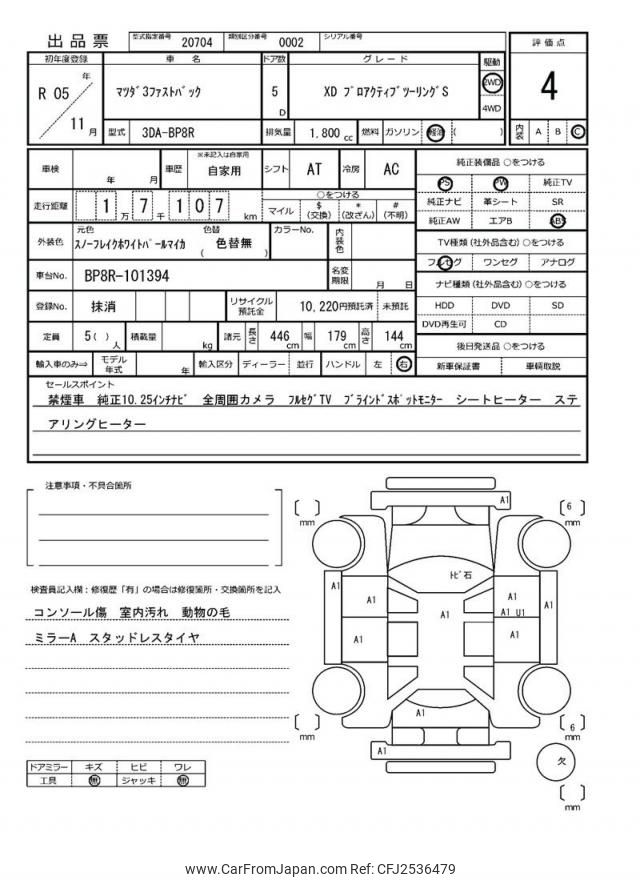 出品票 型式指定番号 20704 類別区分番号 0002 シリアル番号
初年度登録 車名 ドア数 グレード 駆動 評価点
R 05 年 11 月 ﾏﾂﾀﾞ3ﾌｧｽﾄﾊﾞｯｸ 5 D XD ﾌﾟﾛｱｸﾃｨﾌﾞﾂｰﾘﾝｸﾞS 2WD 4WD 4
型式 3DA-BP8R 排気量 1.800 cc 燃料 ガソリン 軽油 ( ) 内装 A B C
車検 年 月 車歴 ※未記入は自家用 自家用 シフト AT 冷房 AC
走行距離 1 万 7 千 1 0 7 km ○をつける
マイル $ (交換) * (改ざん) # (不明)
外装色 元色 ｽﾉｰﾌﾚｲｸﾎﾜｲﾄﾊﾟｰﾙﾏｲｶ 色替 ( 色替無 ) カラーNo. 内装色
車台No. BP8R-101394 名変期限 月 日
登録No. 抹消 リサイクル預託金 10,220円預託済 未預託
定員 5( ) 人 積載量 kg 諸元 長さ 446 cm 幅 179 cm 高さ 144 cm
輸入車のみ⇒ モデル年式 年 輸入区分 ディーラー 並行 ハンドル 左 右
純正装備品 ○をつける
PS PW 純正TV
純正ナビ 革シート SR
純正AW エアB ABS
TV種類(社外品含む)○をつける
フルセグ ワンセグ アナログ
ナビ種類(社外品含む)○をつける
HDD DVD SD
DVD再生可 CD
後日発送品 ○をつける
新車保証書 車輌取説
セールスポイント
禁煙車 純正10.25ｲﾝﾁﾅﾋﾞ 全周囲カメラ ﾌﾙｾｸﾞTV ﾌﾞﾗｲﾝﾄﾞｽﾎﾟｯﾄﾓﾆﾀｰ シートヒーター ステ
アリングヒーター
注意事項・不具合箇所
検査員記入欄:修復歴「有」の場合は修復箇所・交換箇所を記入
コンソール傷 室内汚れ 動物の毛
ミラーA スタッドレスタイヤ
ドアミラー キズ ヒビ ワレ
工具 無 ジャッキ 無
A1
[ ] mm
[ 6 ] mm
ﾄﾋﾞ石
A1
A1
A1
A1
A1 U1
A1
A1
A1
A1
A1
A1
[ ] mm
[ 6 ] mm
欠
[ ] mm
www.CarFromJapan.com Ref: CFJ2536479